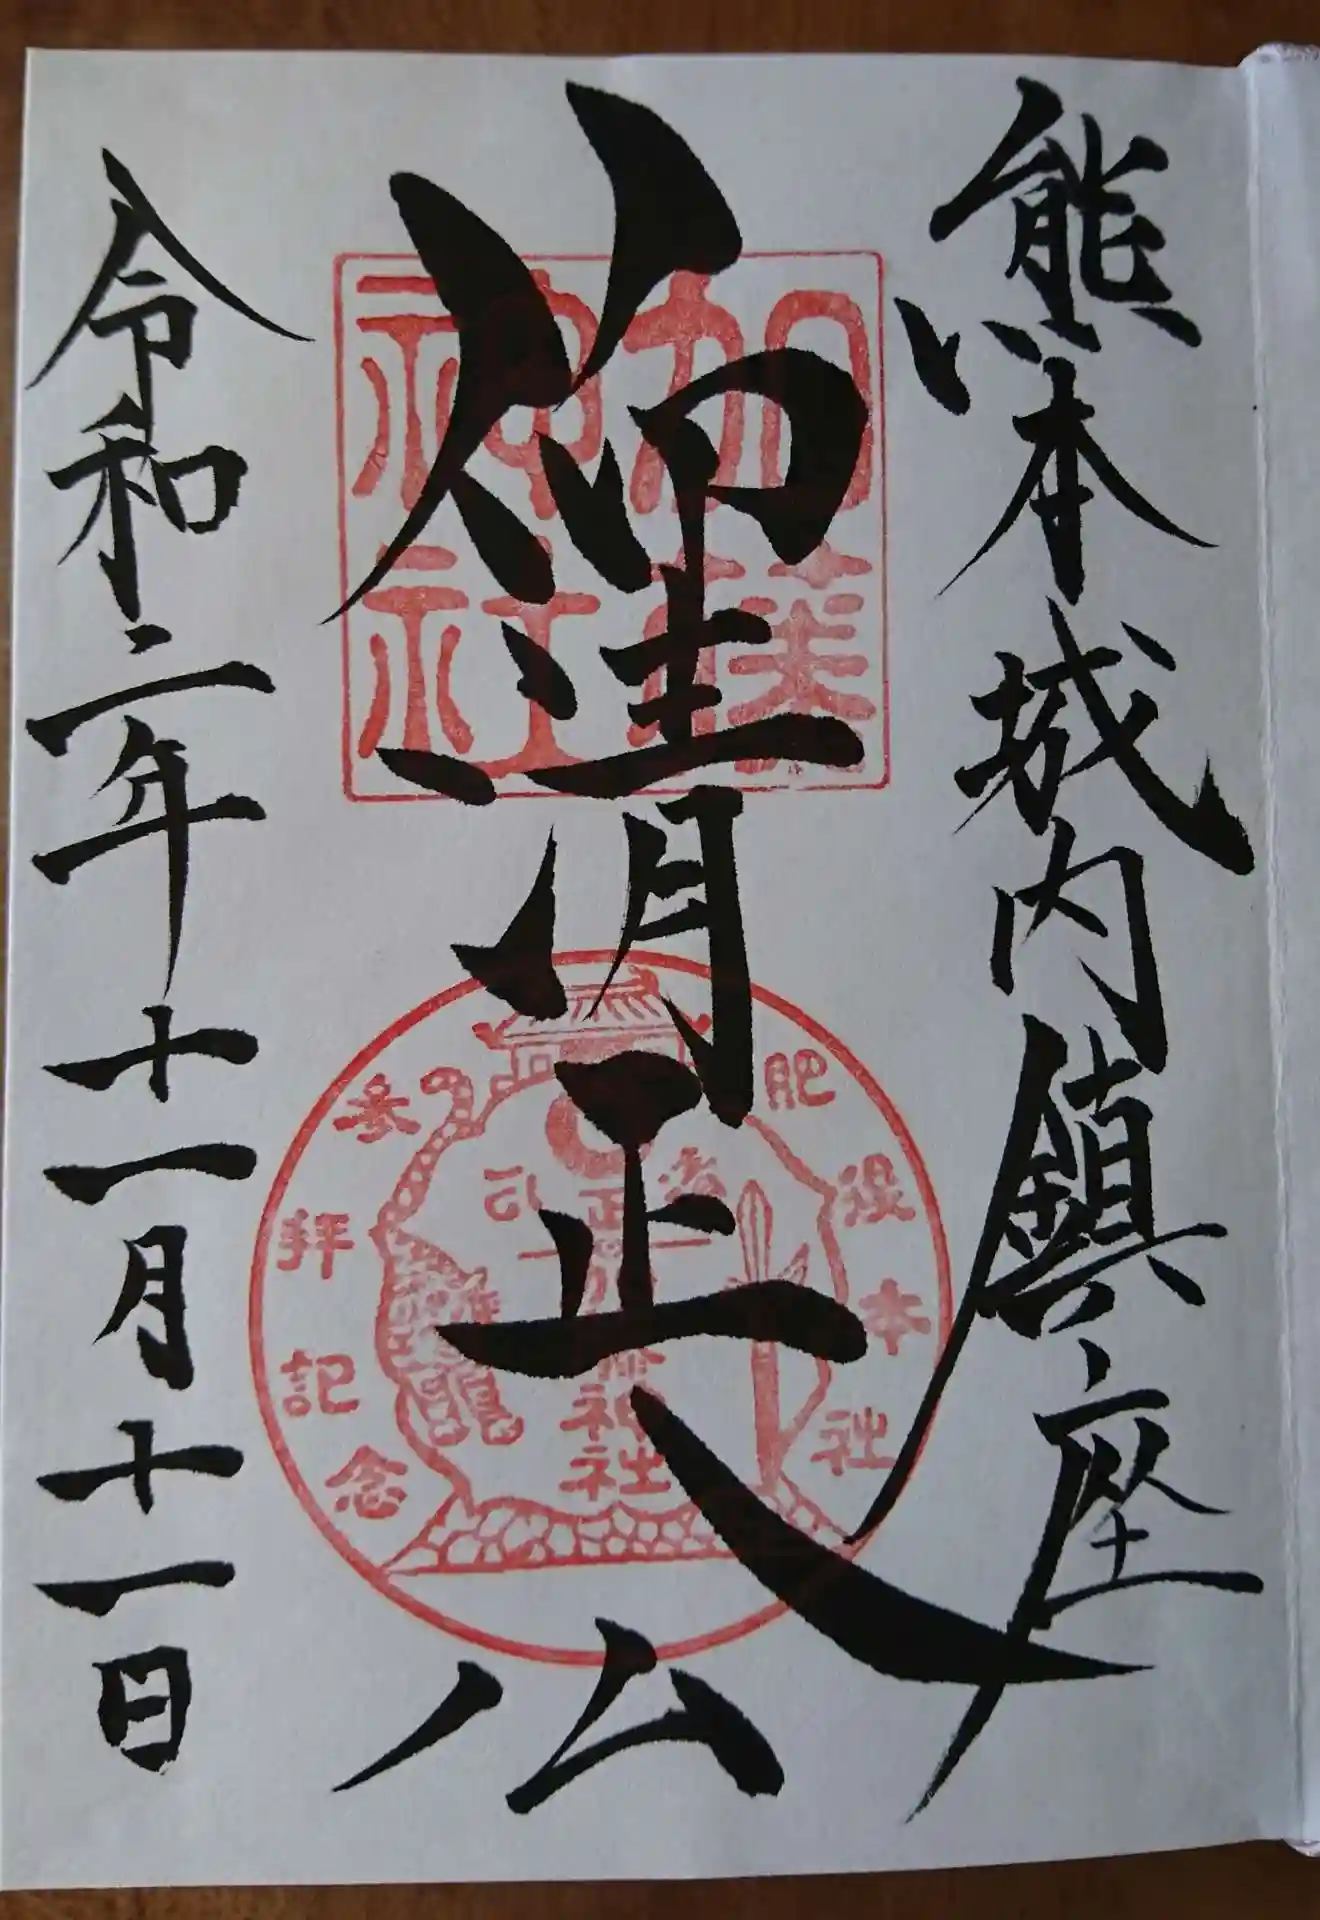 熊本城内鎮座
仰清正公
令和二年十一月十一日
加藤
神社
肥後本社
参拝記念
神社